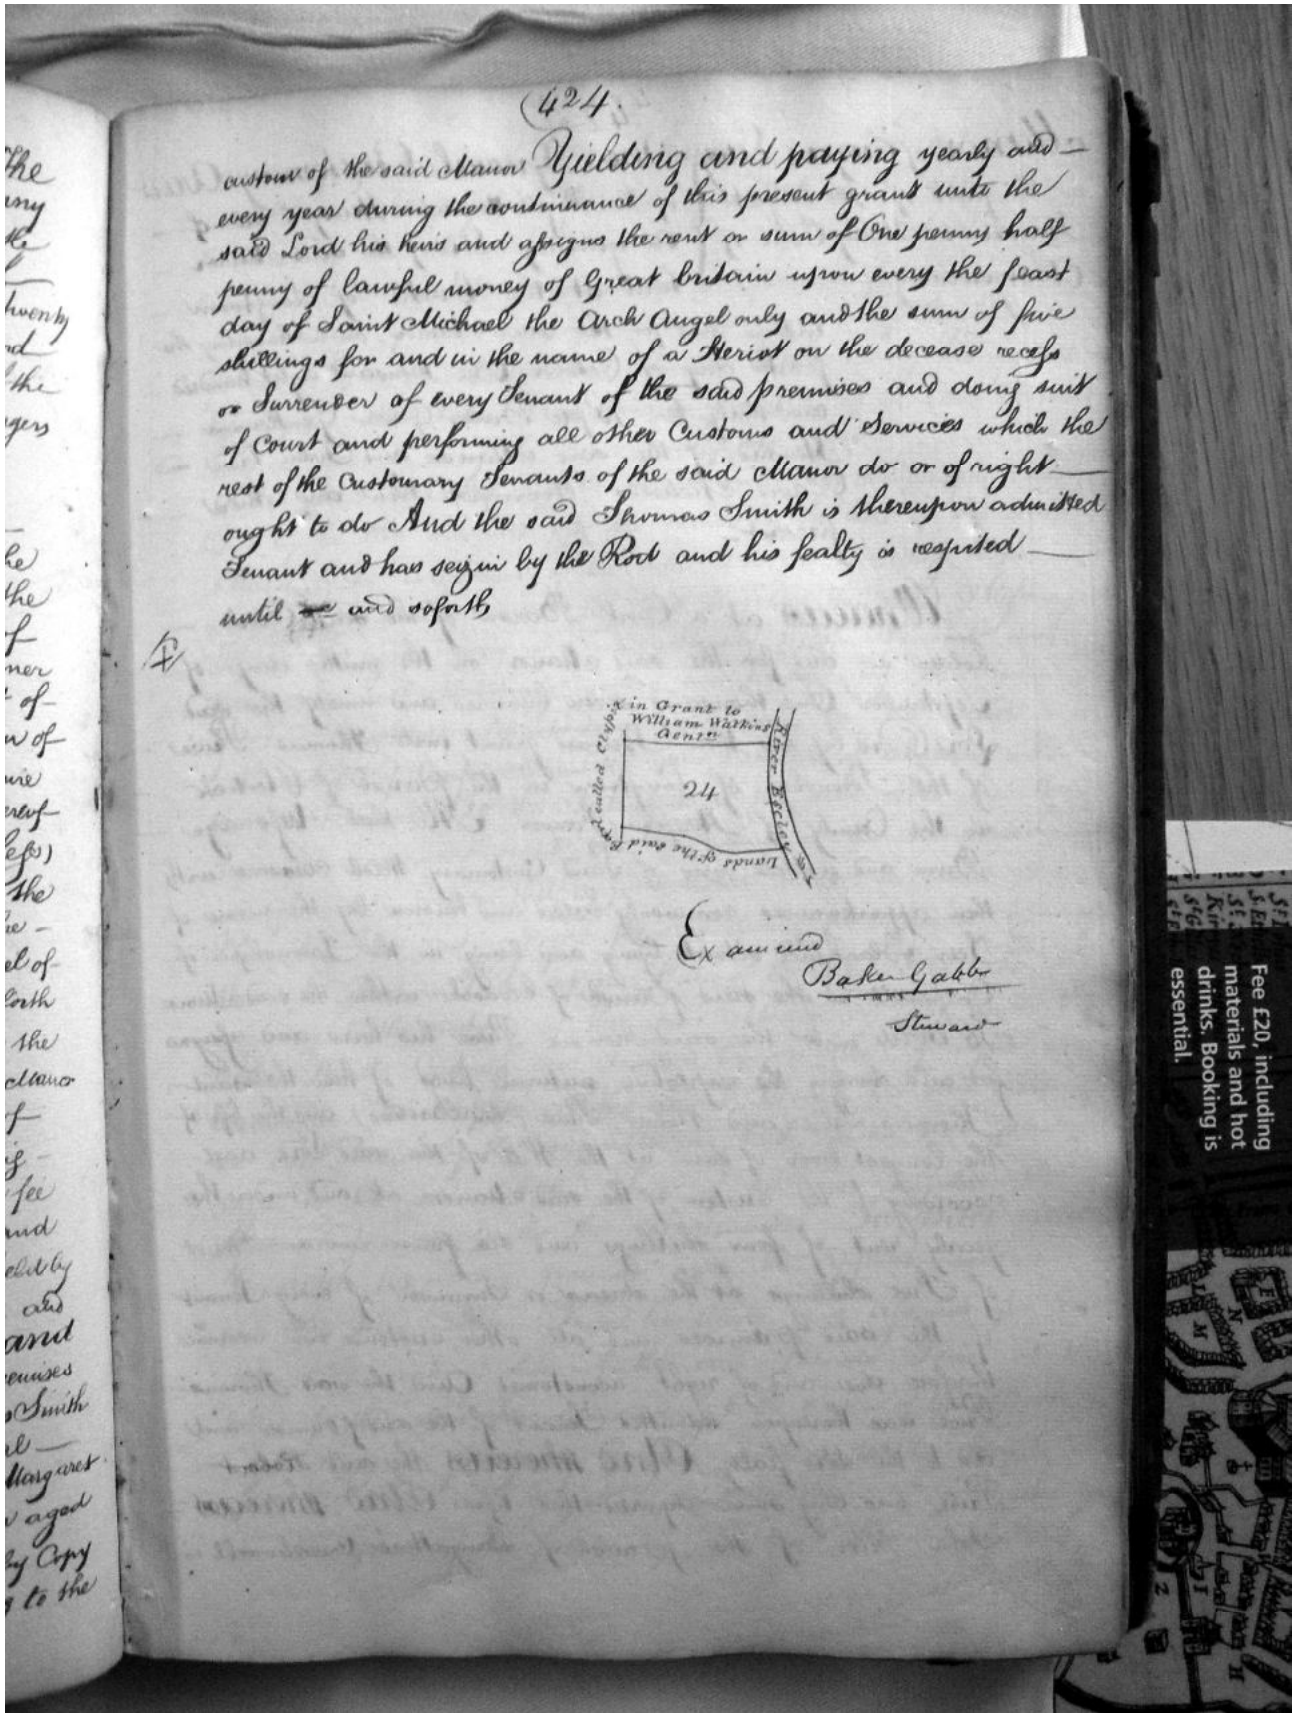 (424.
custom of the said Manor Yielding and paying yearly and
every year during the continuance of this present grant unto the
said Lord his heirs and assigns the rent or sum of One penny half
penny of lawful money of Great britain upon every the feast
day of Saint Michael the Arch Angel only and the sum of five
shillings for and in the name of a Heriot on the decease recess
or Surrender of every Tenant of the said premises and doing suit
of Court and performing all other Customs and Services which the
rest of the Customary Tenants of the said Manor do or of right
ought to do And the said Thomas Smith is thereupon admitted
Tenant and has seizin by the Rod and his fealty is respited
until and soforth
in Grant to
William Watkins
Gentn
River
24
called
Lands of the said
Examined
Baker Gabb
Steward
The
the
Twenty
the
he
the
of
of
of
the
of
the
Manor
of
fee
and
held by
and
and
premises
Smith
Margaret
aged
by Copy
to the
Fee £20, including
materials and hot
drinks. Booking is
essential.
F
N
L
M
I
Z
H